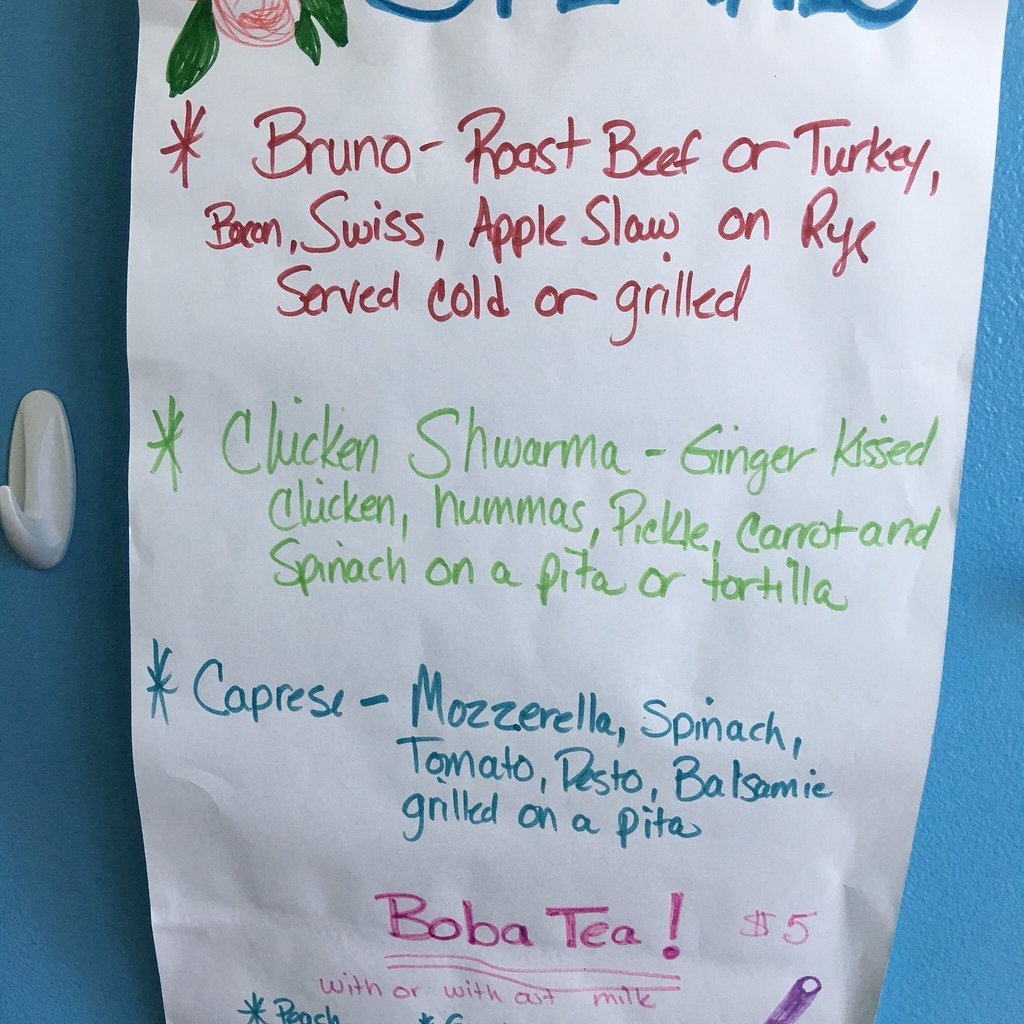 * Bruno - Roast Beef or Turkey,
Bacon, Swiss, Apple Slaw on Rye
Served cold or grilled
* Chicken Shwarma - Ginger Kissed
Chicken, hummas, Pickle, Carrot and
Spinach on a pita or tortilla
* Caprese - Mozzerella, Spinach,
Tomato, Pesto, Balsamic
grilled on a pita
Boba Tea! $5
with or with out milk
* Peach